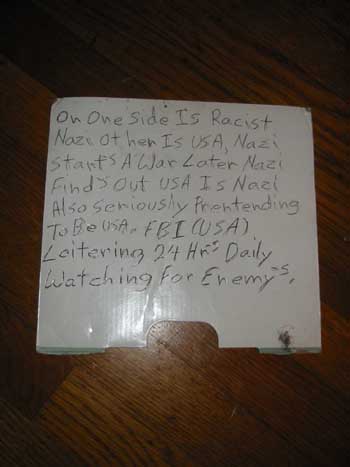 On One Side Is Racist
Nazi Other Is USA, Nazi
Starts A War Later Nazi
Finds Out USA Is Nazi
Also Seriously Prentending
To Be USA. FBI (USA)
Loitering 24 Hr-s Daily
Watching For Enemy-s.